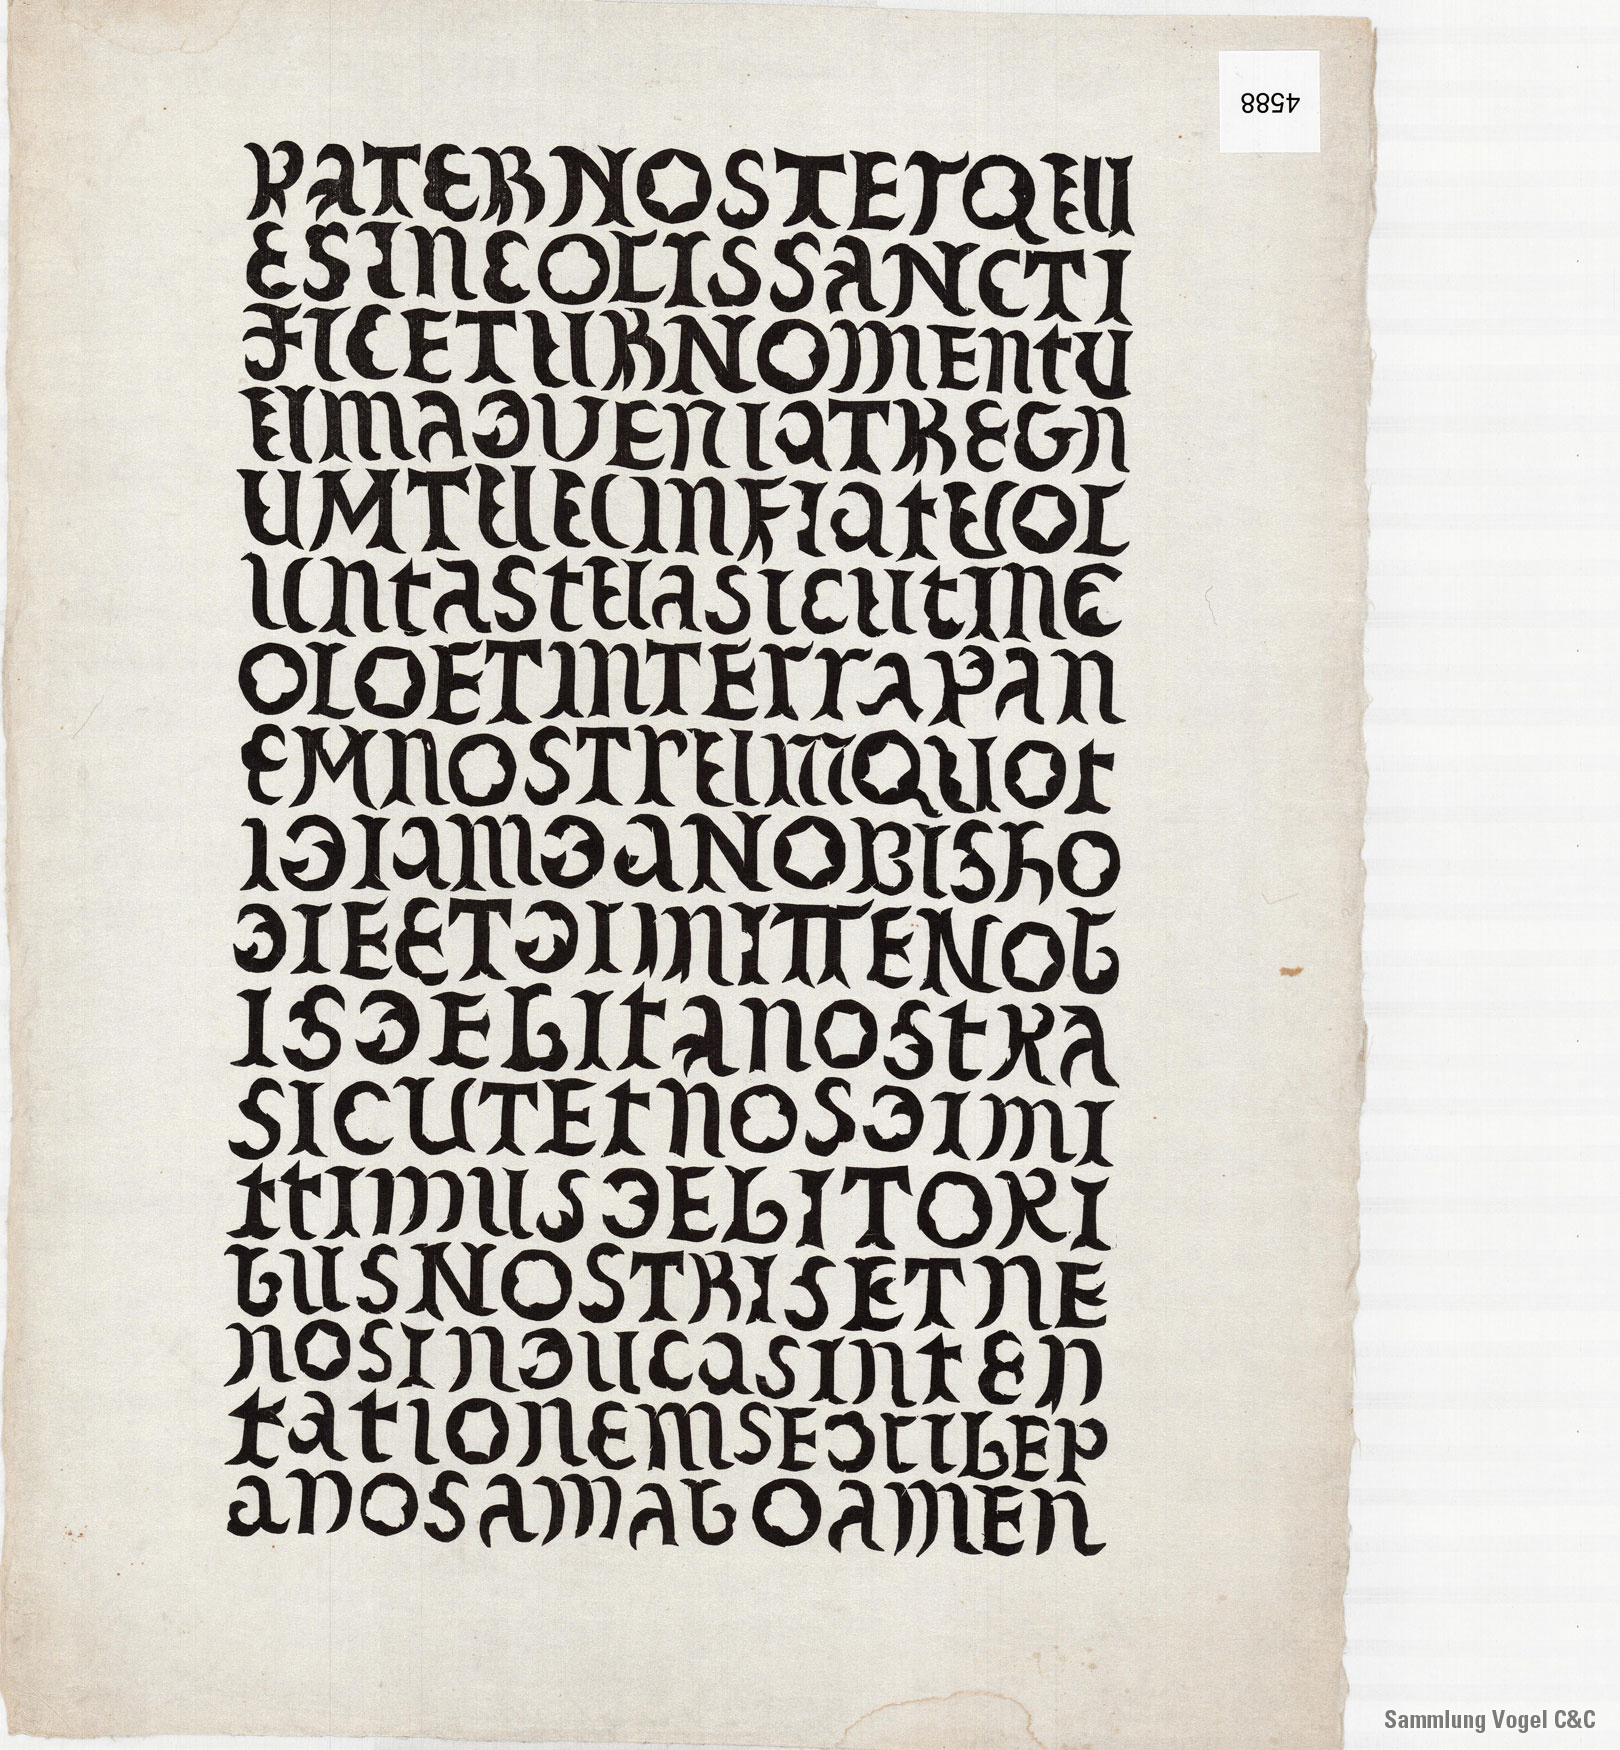 PATERNOSTERQUI
ESINCOLISSANCTI
FICETURNOMENTU
UMADVENIATREGN
UMTUUMFIATVOL
UNTASTUASICUTINC
OLOETINTERRAPAN
EMNOSTRUMQUOT
IDIAMDANOBISHO
DIEETDIMITTENOB
ISDEBITANOSTRA
SICUTETNOSDIMI
TTIMUSDEBITORI
BUSNOSTRISETNE
NOSINDUCASINTEN
TATIONEMSEDLIBEP
ANOSAMABOAMEN
4588
Sammlung Vogel C&C